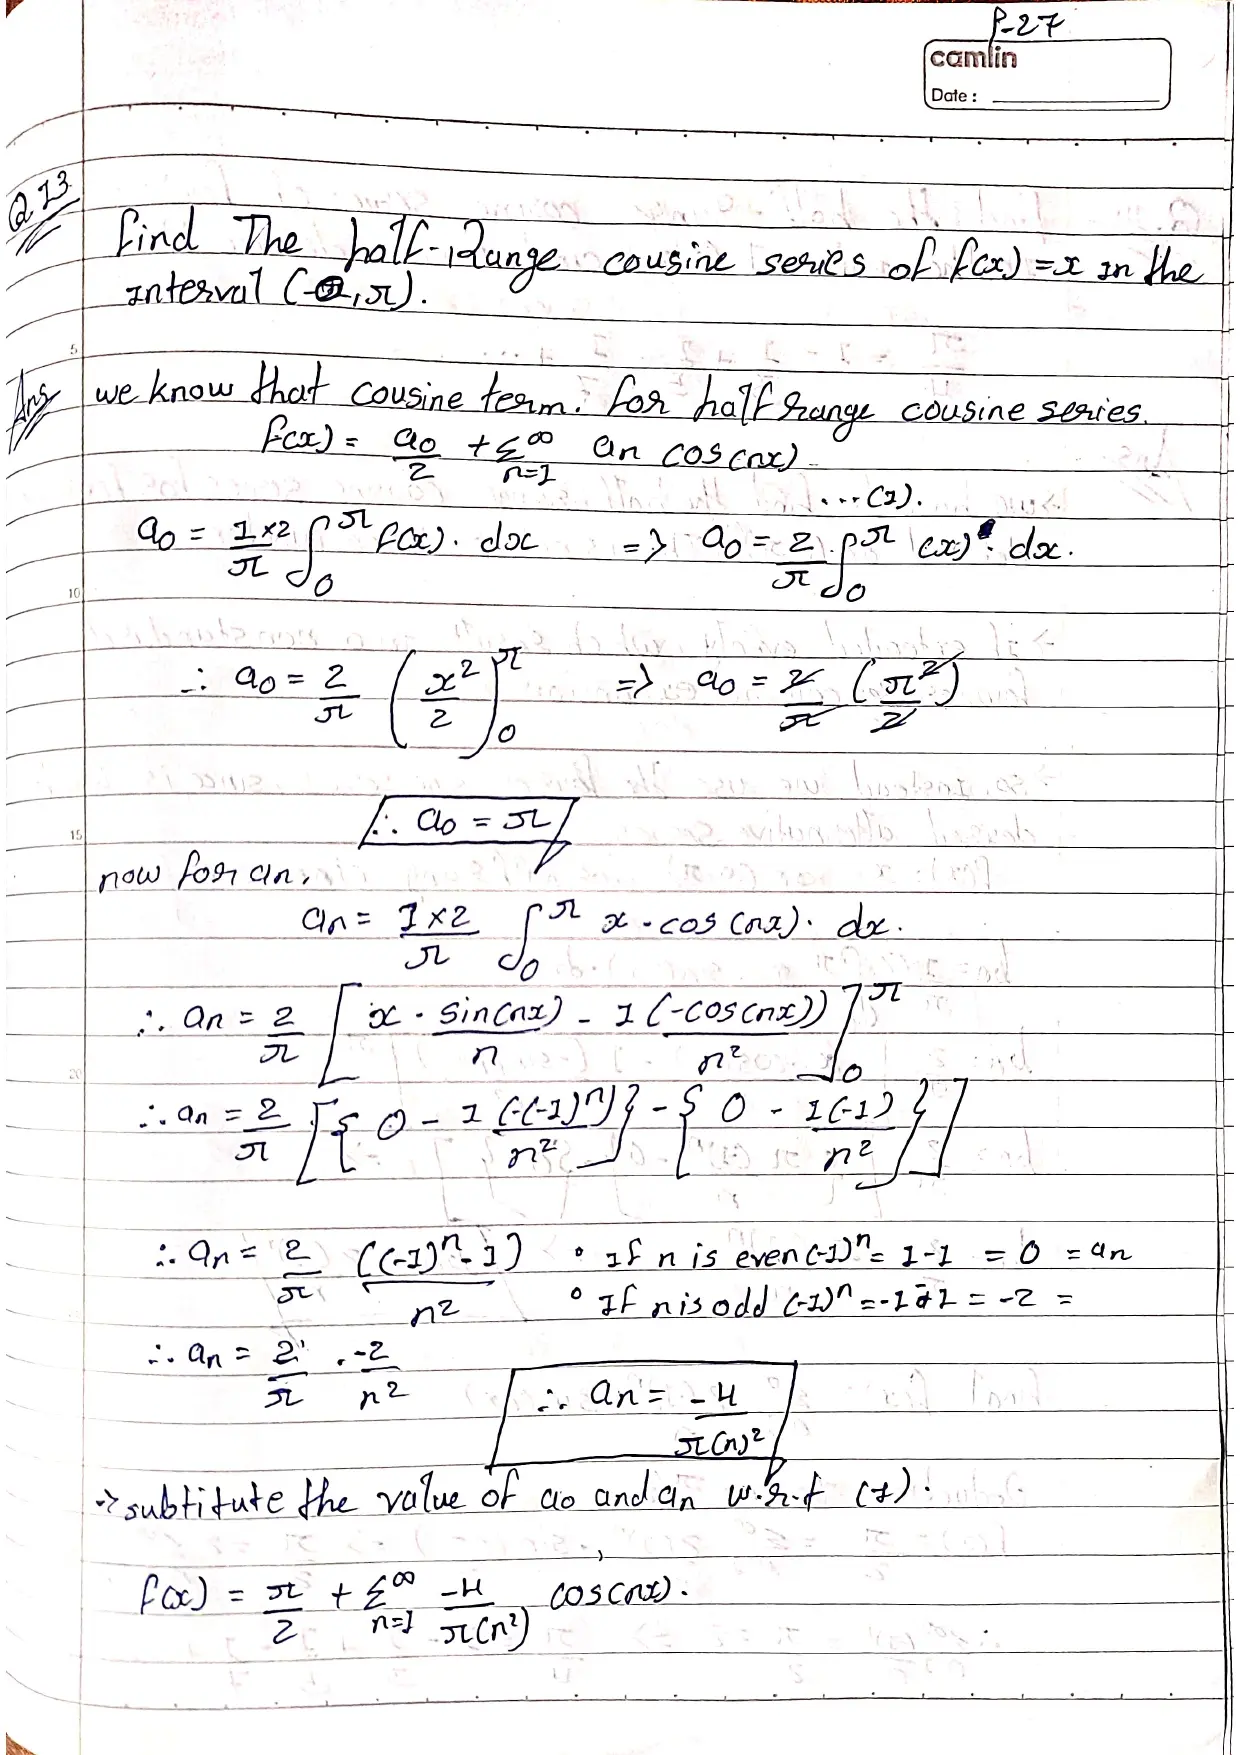 P-27
camlin
Date :
Q 13.
find The half-Range cousine series of f(x) = x In the
Interval (-0, π).
5
Ans we know that cousine term. for half range cousine series.
f(x) = a0/2 + Σ^∞ n=1 an cos(nx)
...(1).
a0 = 1×2/π ∫0^π f(x). dx => a0 = 2/π ∫0^π (x). dx.
10
∴ a0 = 2/π (x²/2)0^π => a0 = 2/π (π²/2)
∴ a0 = π
15
now for an,
an = 1×2/π ∫0^π x · cos(nx). dx.
∴ an = 2/π [x · sin(nx)/n - 1(-cos(nx))/n²]0^π
20
∴ an = 2/π [{0 - 1(-(-1)^n)/n²} - {0 - 1(-1)/n²}]
∴ an = 2/π ((-1)^n - 1)/n² • If n is even (-1)^n = 1-1 = 0 = an
• If n is odd (-1)^n = -1-1 = -2 =
∴ an = 2/π . -2/n²
∴ an = -4/π(n)²
-> subtitute the value of a0 and an w.r.t (1).
f(x) = π/2 + Σ^∞ n=1 -4/π(n²) cos(nx).